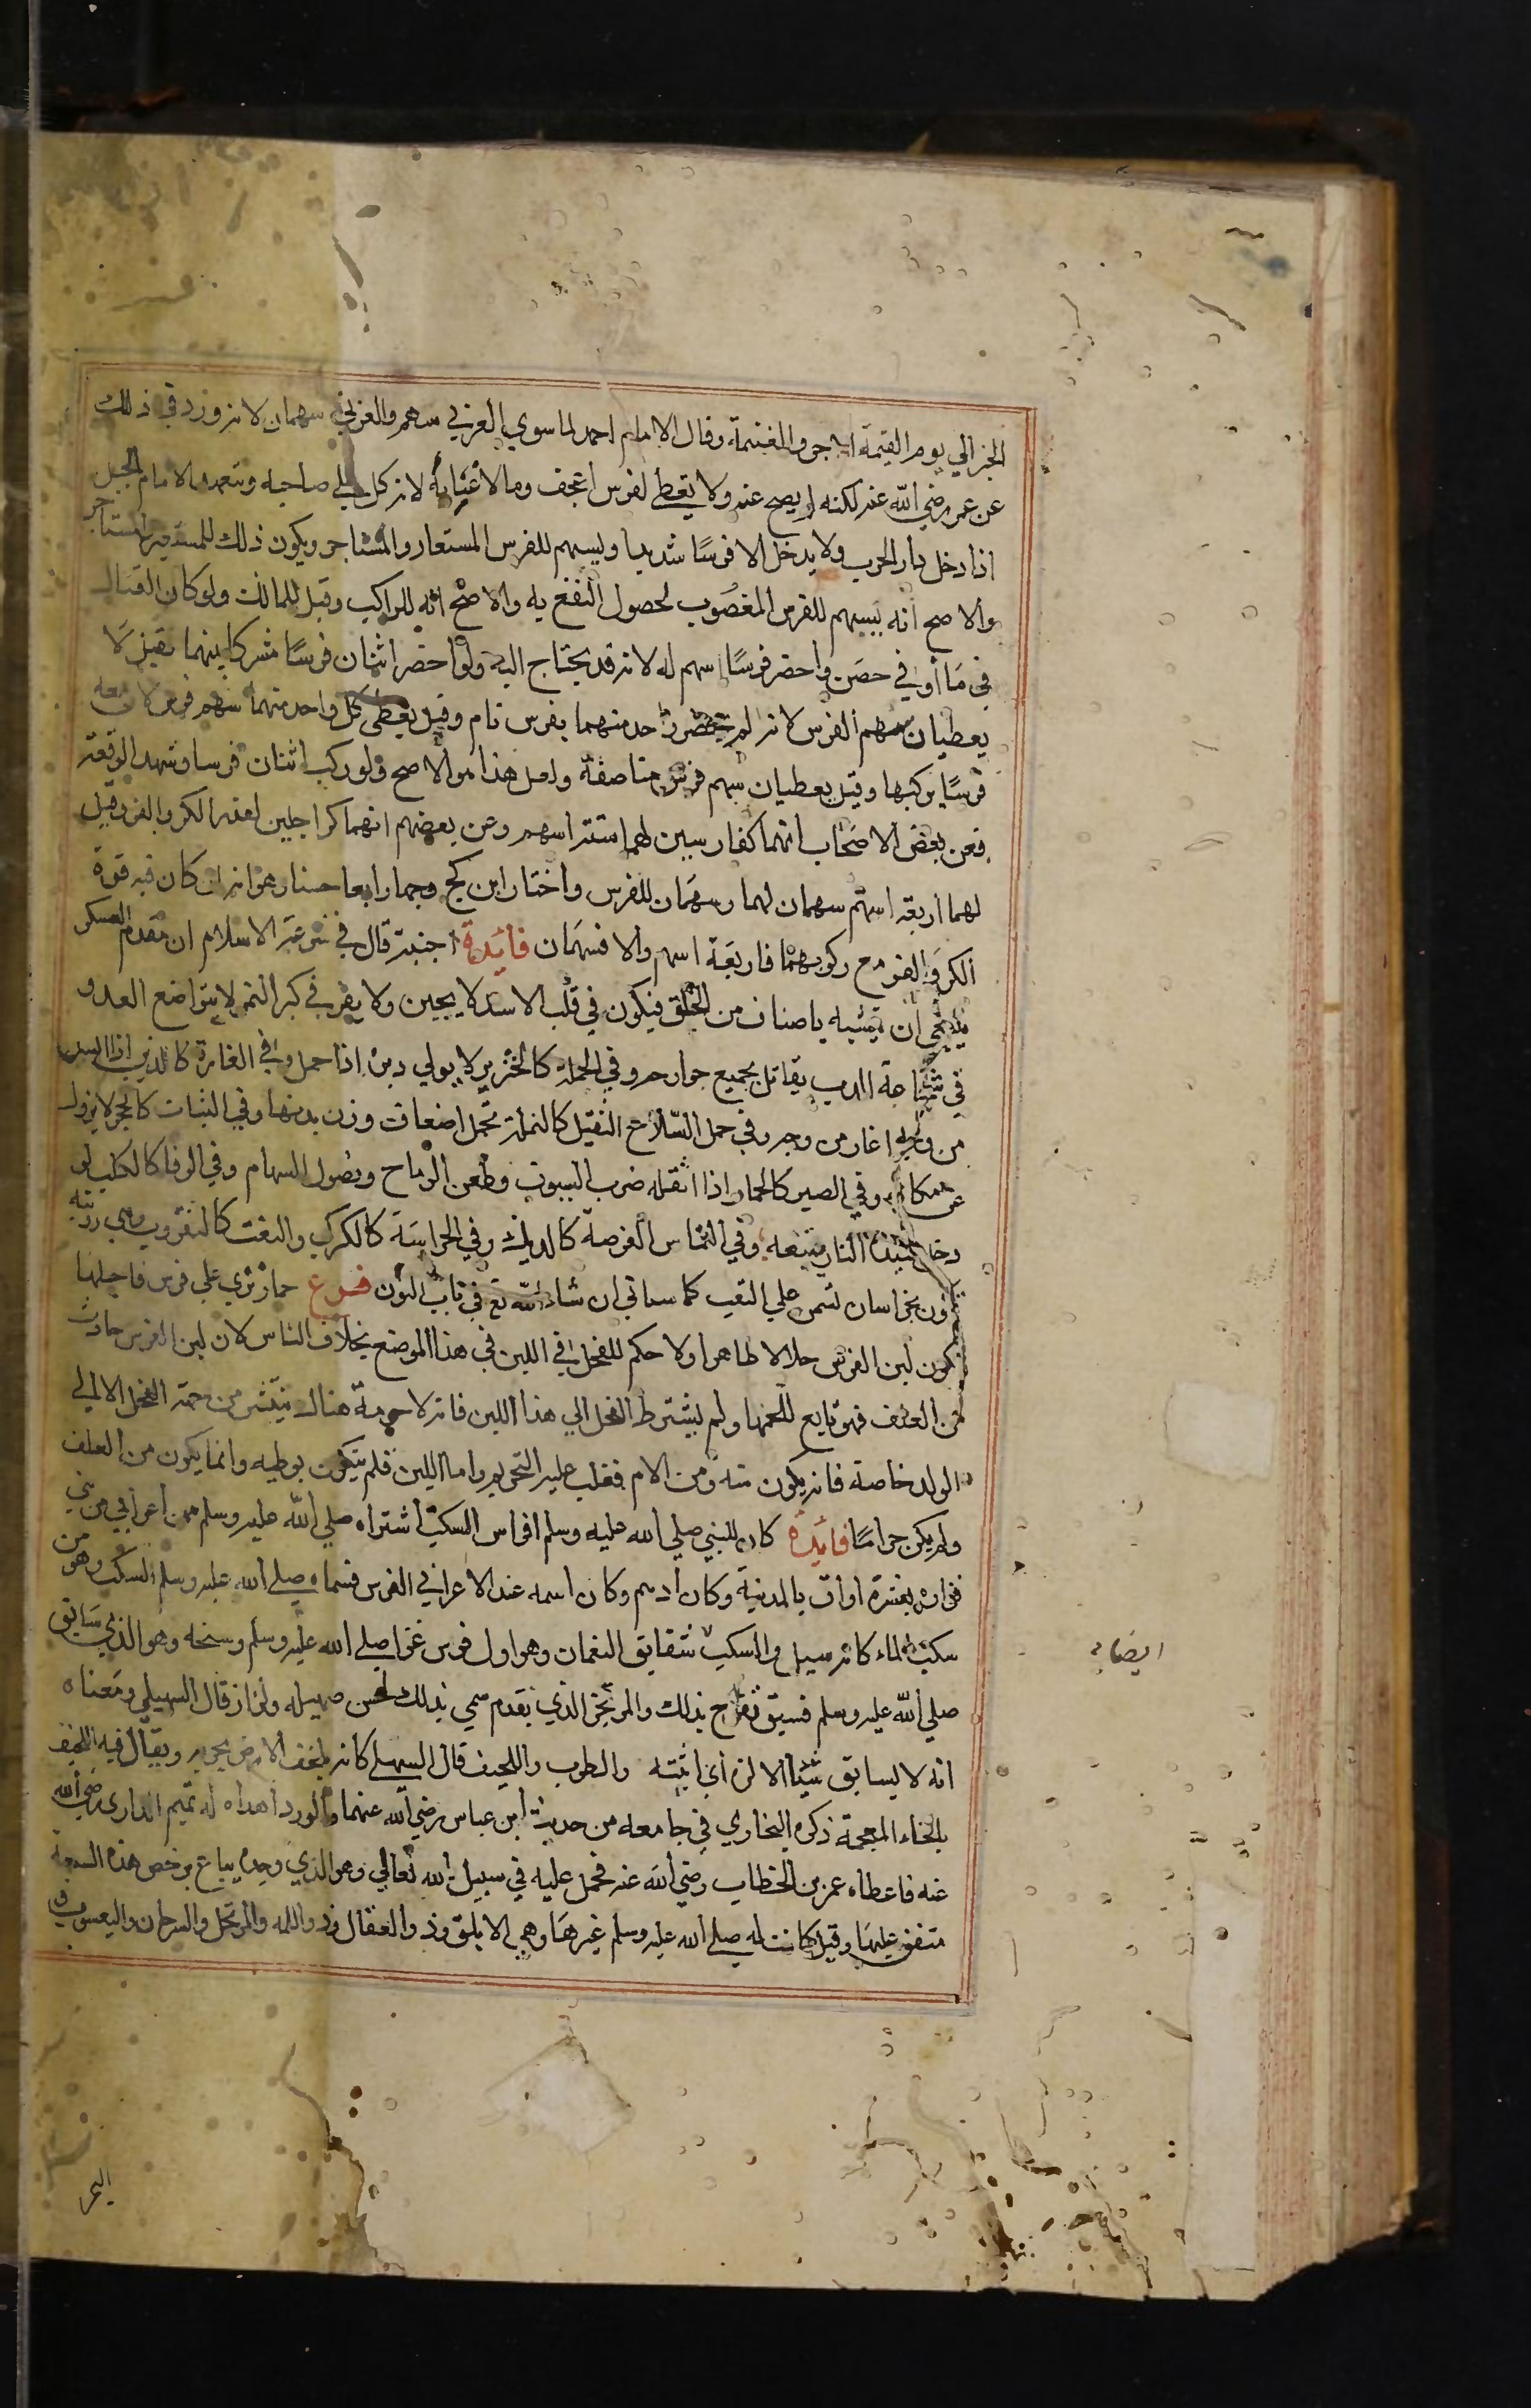 الخير الي يوم القيمة الاجر والغنيمة وقال الامام احمد لما سوي العربي سهم والعربي سهمان لانه ورد في ذلك
عن عمر رضي الله عنه لكنه لم يصح عنه ولا يعطي لفرس اعجف وما لا غنا به لانه كل علي صاحبه ويتعهد الامام الخيل
اذا دخل دار الحرب ولا يدخل الا فرسًا شديدا ويسهم للفرس المستعار والمستاجر ويكون ذلك للمستعير والمستاجر
والاصح انه يسهم للفرس المغصُوب لحصول النفع به والاصح انه للراكب وقيل للمالك ولو كان القتال
في مَا أو في حصَن واحضر فرسًا اسهم له لانه قد يحتاج اليه ولو احضر اثنان فرسًا مشتركا بينهما فقيل لا
يعطيان سهم الفرس لانه لم يحضر واحد منهما بفرس تام وقيل يعطي كل واحد منهما سهم فرس لان معه
فرسًا يركبها وقيل يعطيان سهم فرس مناصفة ولعل هذا هو الاصح ولو ركب اثنان فرسا وشهدا الوقعة
فعن بعض الاصحاب انهما كفارسين لهما ستة اسهم وعن بعضهم انهما كراجلين لعذر الكر والفر وقيل
لهما اربعة اسهم سهمان لهما وسهمَان للفرس واختار ابن كج وجها رابعا حسنا وهو انه ان كان فيه قوة
الكر والفر مع ركوبهما فاربعَة اسهم والا فسهمَان فائدة اجنبية قال في شرعة الاسلام ان مقدم العسكر
ينبغي ان يتشبه باصناف من الخلق فيكون في قلب الاسد لا يجبن ولا يفر وفي كبر النمر لا يتواضع للعدو
في شجاعة الدب يقاتل بجميع جوارحه وفي الحملة كالخنزير لا يولي دبره اذا حمل وفي الغارة كالذئب اذا ايس
من وجه اغار من وجه وفي حمل السّلاح الثقيل كالنملة تحمل اضعاف وزن بدنها وفي الثبات كالحجر لا يزول
عن مكانه وفي الصبر كالحمار اذا اثقله ضرب السيوف وطعن الرماح ونصول السهام وفي الوفا كالكلب لو
دخل سيده النار يتبعه وفي التماس الفرصة كالديك وفي الحراسَة كالكركي وفي التعب كالنعرو وهي دويبة
تكون بخراسان تسمن علي التعب كما سياتي ان شاء الله تع في باب النون فرع حمار نزي علي فرس فاحبلها
يكون لبن الفرس حلالا طاهرا ولا حكم للفحل في اللبن في هذا الموضع بخلاف الناس لان لبن الفرس حادث
من العلف فهو تابع للحمها ولم يشترط الفحل الي هذا اللبن فانه لا حرمة هناك ينتشر من جهة الفحل الا الي
الولد خاصة فانه يكون منه ومن الام فغلب عليه التحريم واما اللبن فلم يتكون بوطيه وانما يكون من العلف
ولم يكن حرامًا فائدة كان للنبي صلي الله عليه وسلم افراس السكب اشتراه صلي الله عليه وسلم من اعرابي من بني
فزارة بعشرة اواق بالمدينة وكان ادهم وكان اسمه عند الاعرابي الفرس فسماه صلي الله عليه وسلم السكب وهو من
سكب الماء كانه سيل والسكب شقايق النعمان وهو اول فرس غزا صلي الله عليه وسلم وسبحه وهو الذي سَابق
ايضا
صلي الله عليه وسلم فسبق ففرح بذلك والمرتجز الذي تقدم سمي بذلك لحسن صهيله ولزاز قال السهيلي ومعناه
انه لا يسابق شيئا الا لزه أي اثبته والظرب واللحيف قال السهيلي كانه يلحف الارض بجريه ويقال فيه اللخيف
بالخاء المعجمة ذكره البخاري في جامعه من حديث ابن عباس رضي الله عنهما والورد اهداه له تميم الداري رضي الله
عنه فاعطاه عمر بن الخطاب رضي الله عنه فحمل عليه في سبيل الله تعالي وهو الذي وجده يباع برخص هذه السبعة
متفق عليهَا وقيل كانت له صلي الله عليه وسلم غيرهَا وهي الابلق وذو العقال وذو اللمه والمرتجل والسرحان واليعسوب
البحر